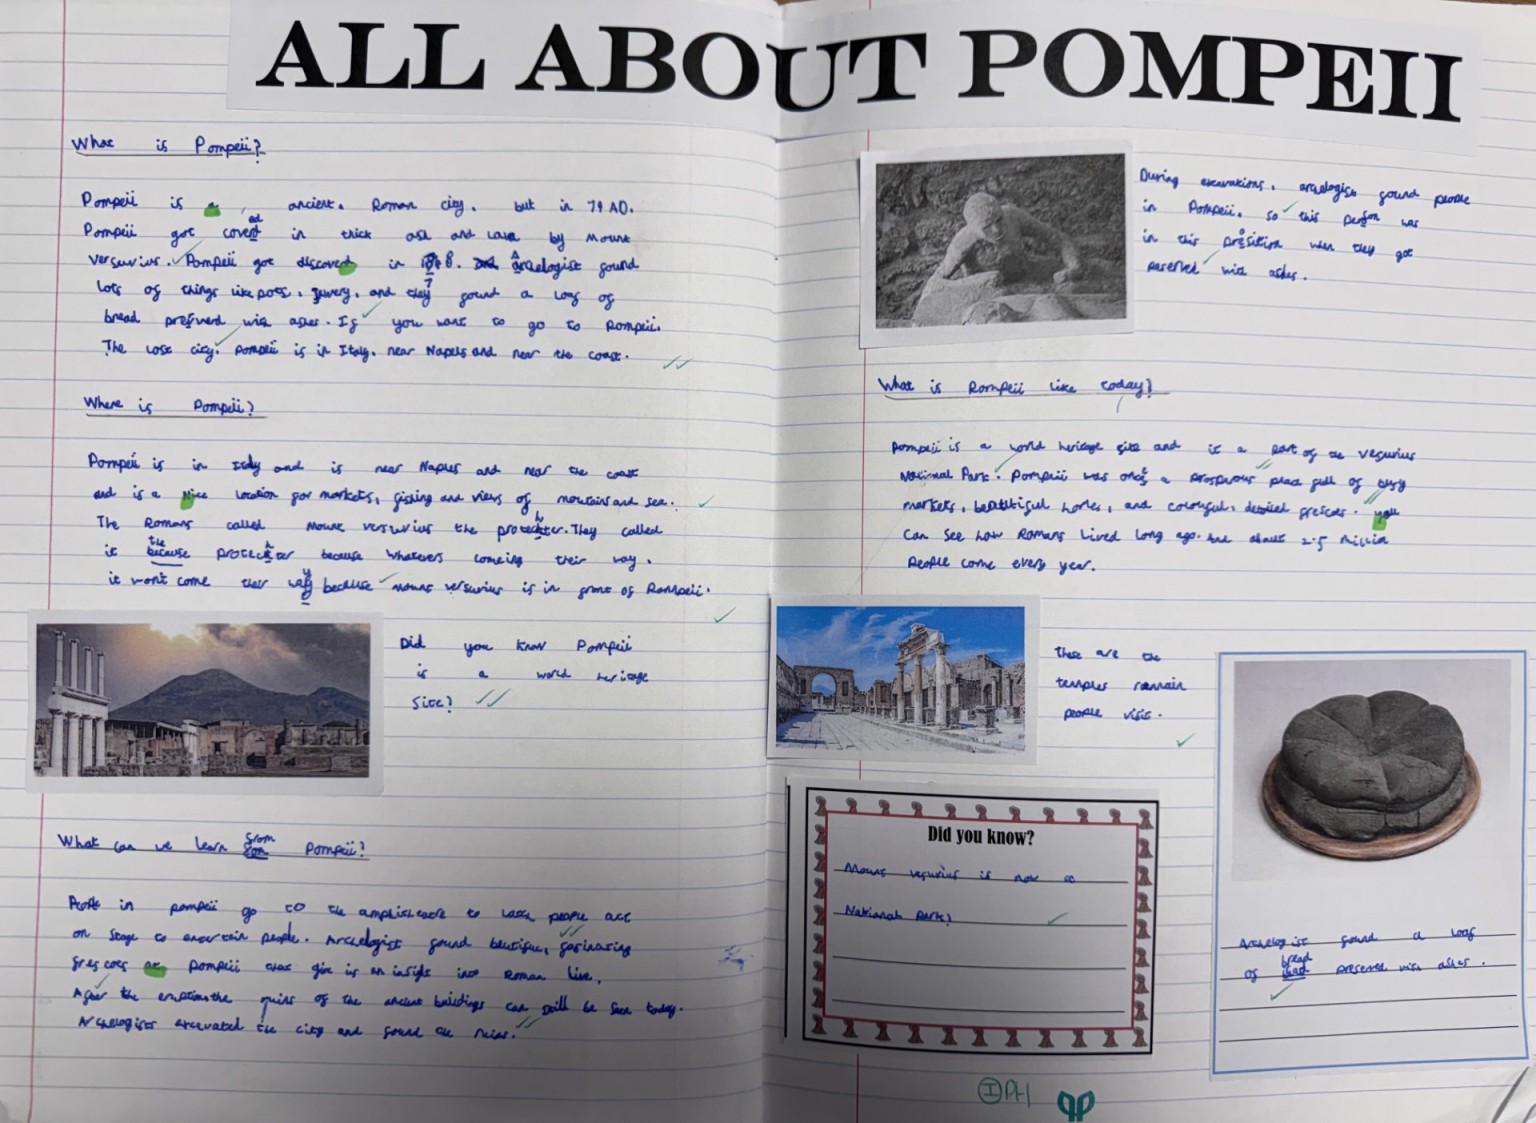 ALL ABOUT POMPEII
What is Pompeii?
Pompeii is a ancient. Roman city. but in 79 AD.
Pompeii got covered in thick ash and lava by Mount
versuvius. Pompeii got discoverd in 8. Archelogist found
lots of things like pots, jewery, and they found a loaf of
bread preserverd with ashes. If you want to go to Pompeii.
The lost city. Pompeii is in Italy. near Napels and near the coast.
Where is Pompeii?
Pompeii is in Italy and is near Naples and near the coast
and is a Nice location for markets, fishing and views of mountains and sea.
The Romans called Mount versuvius the protechter. They called
it the because protechter because whatevers comeing their way.
it won't come their way because mount versuvius is in front of Pompeii.
Did you know Pompeii
is a world heritage
site?
What can we learn from Pompeii?
People in pompeii go to the amphitheatre to watch people act
on stage to entertain people. Archelogist found beutifuc, fasinating
frescoes at Pompeii that give is an insight into Roman live.
After the eruption the ruins of the ancient buildings can still be seen today.
Archelogists excavated the city and found the ruins.
During excavations. archelogists found people
in Pompeii. so this person was
in this prosition when they got
perserved with ashes.
What is Pompeii like today?
Pompeii is a world heritage site and is a part of the vesuvius
National Park. Pompeii was once a prosperous place full of busy
markets, beautiful homes, and colourful, detailed frescoes. you
can see how Romans lived long ago. And about 2.5 million
people come every year.
these are the
temples remain
people visit.
Did you know?
Mount vesuvius is now a
National Park?
Archelogist found a loaf
of bread preserved with ashes.
I PH